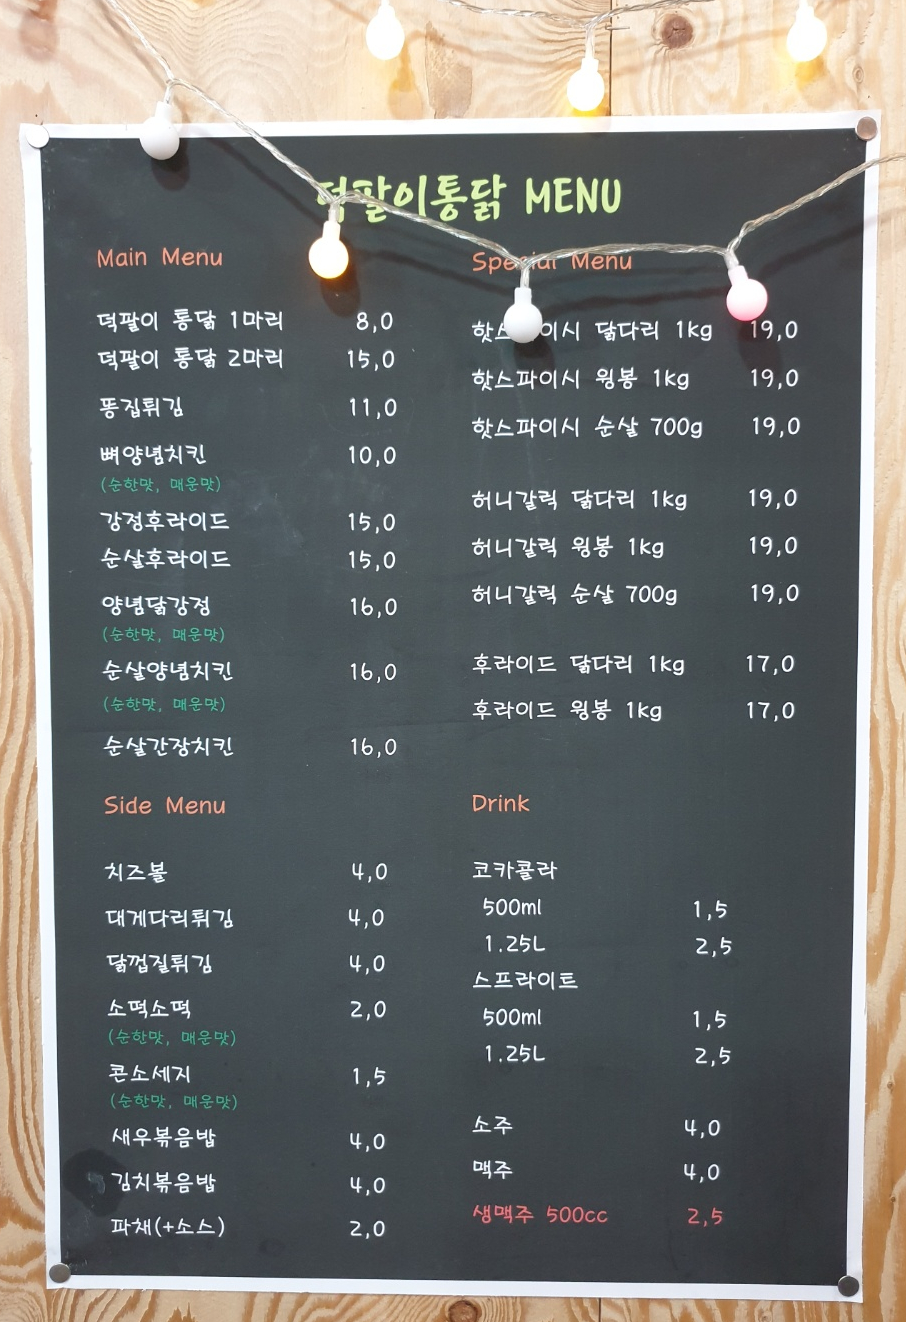 덕팔이통닭 MENU
Main Menu
덕팔이 통닭 1마리 8,0
덕팔이 통닭 2마리 15,0
똥집튀김 11,0
뼈양념치킨 10,0
(순한맛, 매운맛)
강정후라이드 15,0
순살후라이드 15,0
양념닭강정 16,0
(순한맛, 매운맛)
순살양념치킨 16,0
(순한맛, 매운맛)
순살간장치킨 16,0
Special Menu
핫스파이시 닭다리 1kg 19,0
핫스파이시 윙봉 1kg 19,0
핫스파이시 순살 700g 19,0
허니갈릭 닭다리 1kg 19,0
허니갈릭 윙봉 1kg 19,0
허니갈릭 순살 700g 19,0
후라이드 닭다리 1kg 17,0
후라이드 윙봉 1kg 17,0
Side Menu
치즈볼 4,0
대게다리튀김 4,0
닭껍질튀김 4,0
소떡소떡 2,0
(순한맛, 매운맛)
콘소세지 1,5
(순한맛, 매운맛)
새우볶음밥 4,0
김치볶음밥 4,0
파채(+소스) 2,0
Drink
코카콜라
500ml 1,5
1.25L 2,5
스프라이트
500ml 1,5
1.25L 2,5
소주 4,0
맥주 4,0
생맥주 500cc 2,5